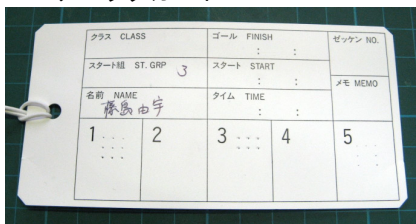 クラス CLASS ゴール FINISH ゼッケン NO.
: :
スタート組 ST. GRP 3 スタート START メモ MEMO
: :
名前 NAME 藤島由宇 タイム TIME
: :
1 2 3 4 5